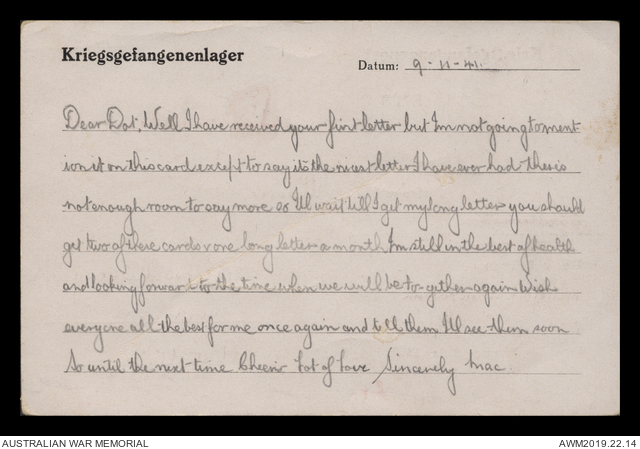 Kriegsgefangenenlager
Datum: 9-11-41.
Dear Dot, Well I have received your first letter but I'm not going to ment-
ion it on this card except to say its the nicest letter I have ever had theris
not enough room to say more so I'll wait till I get my long letter you should
get two of these cards & one long letter a month I'm still in the best of health
and looking forward to the time when we will be to-gether again Wish
everyone all the best for me once again and tell them I'll see them soon
So until the next time Cheerio Lot of Love Sincerely Mac.
AUSTRALIAN WAR MEMORIAL
AWM2019.22.14